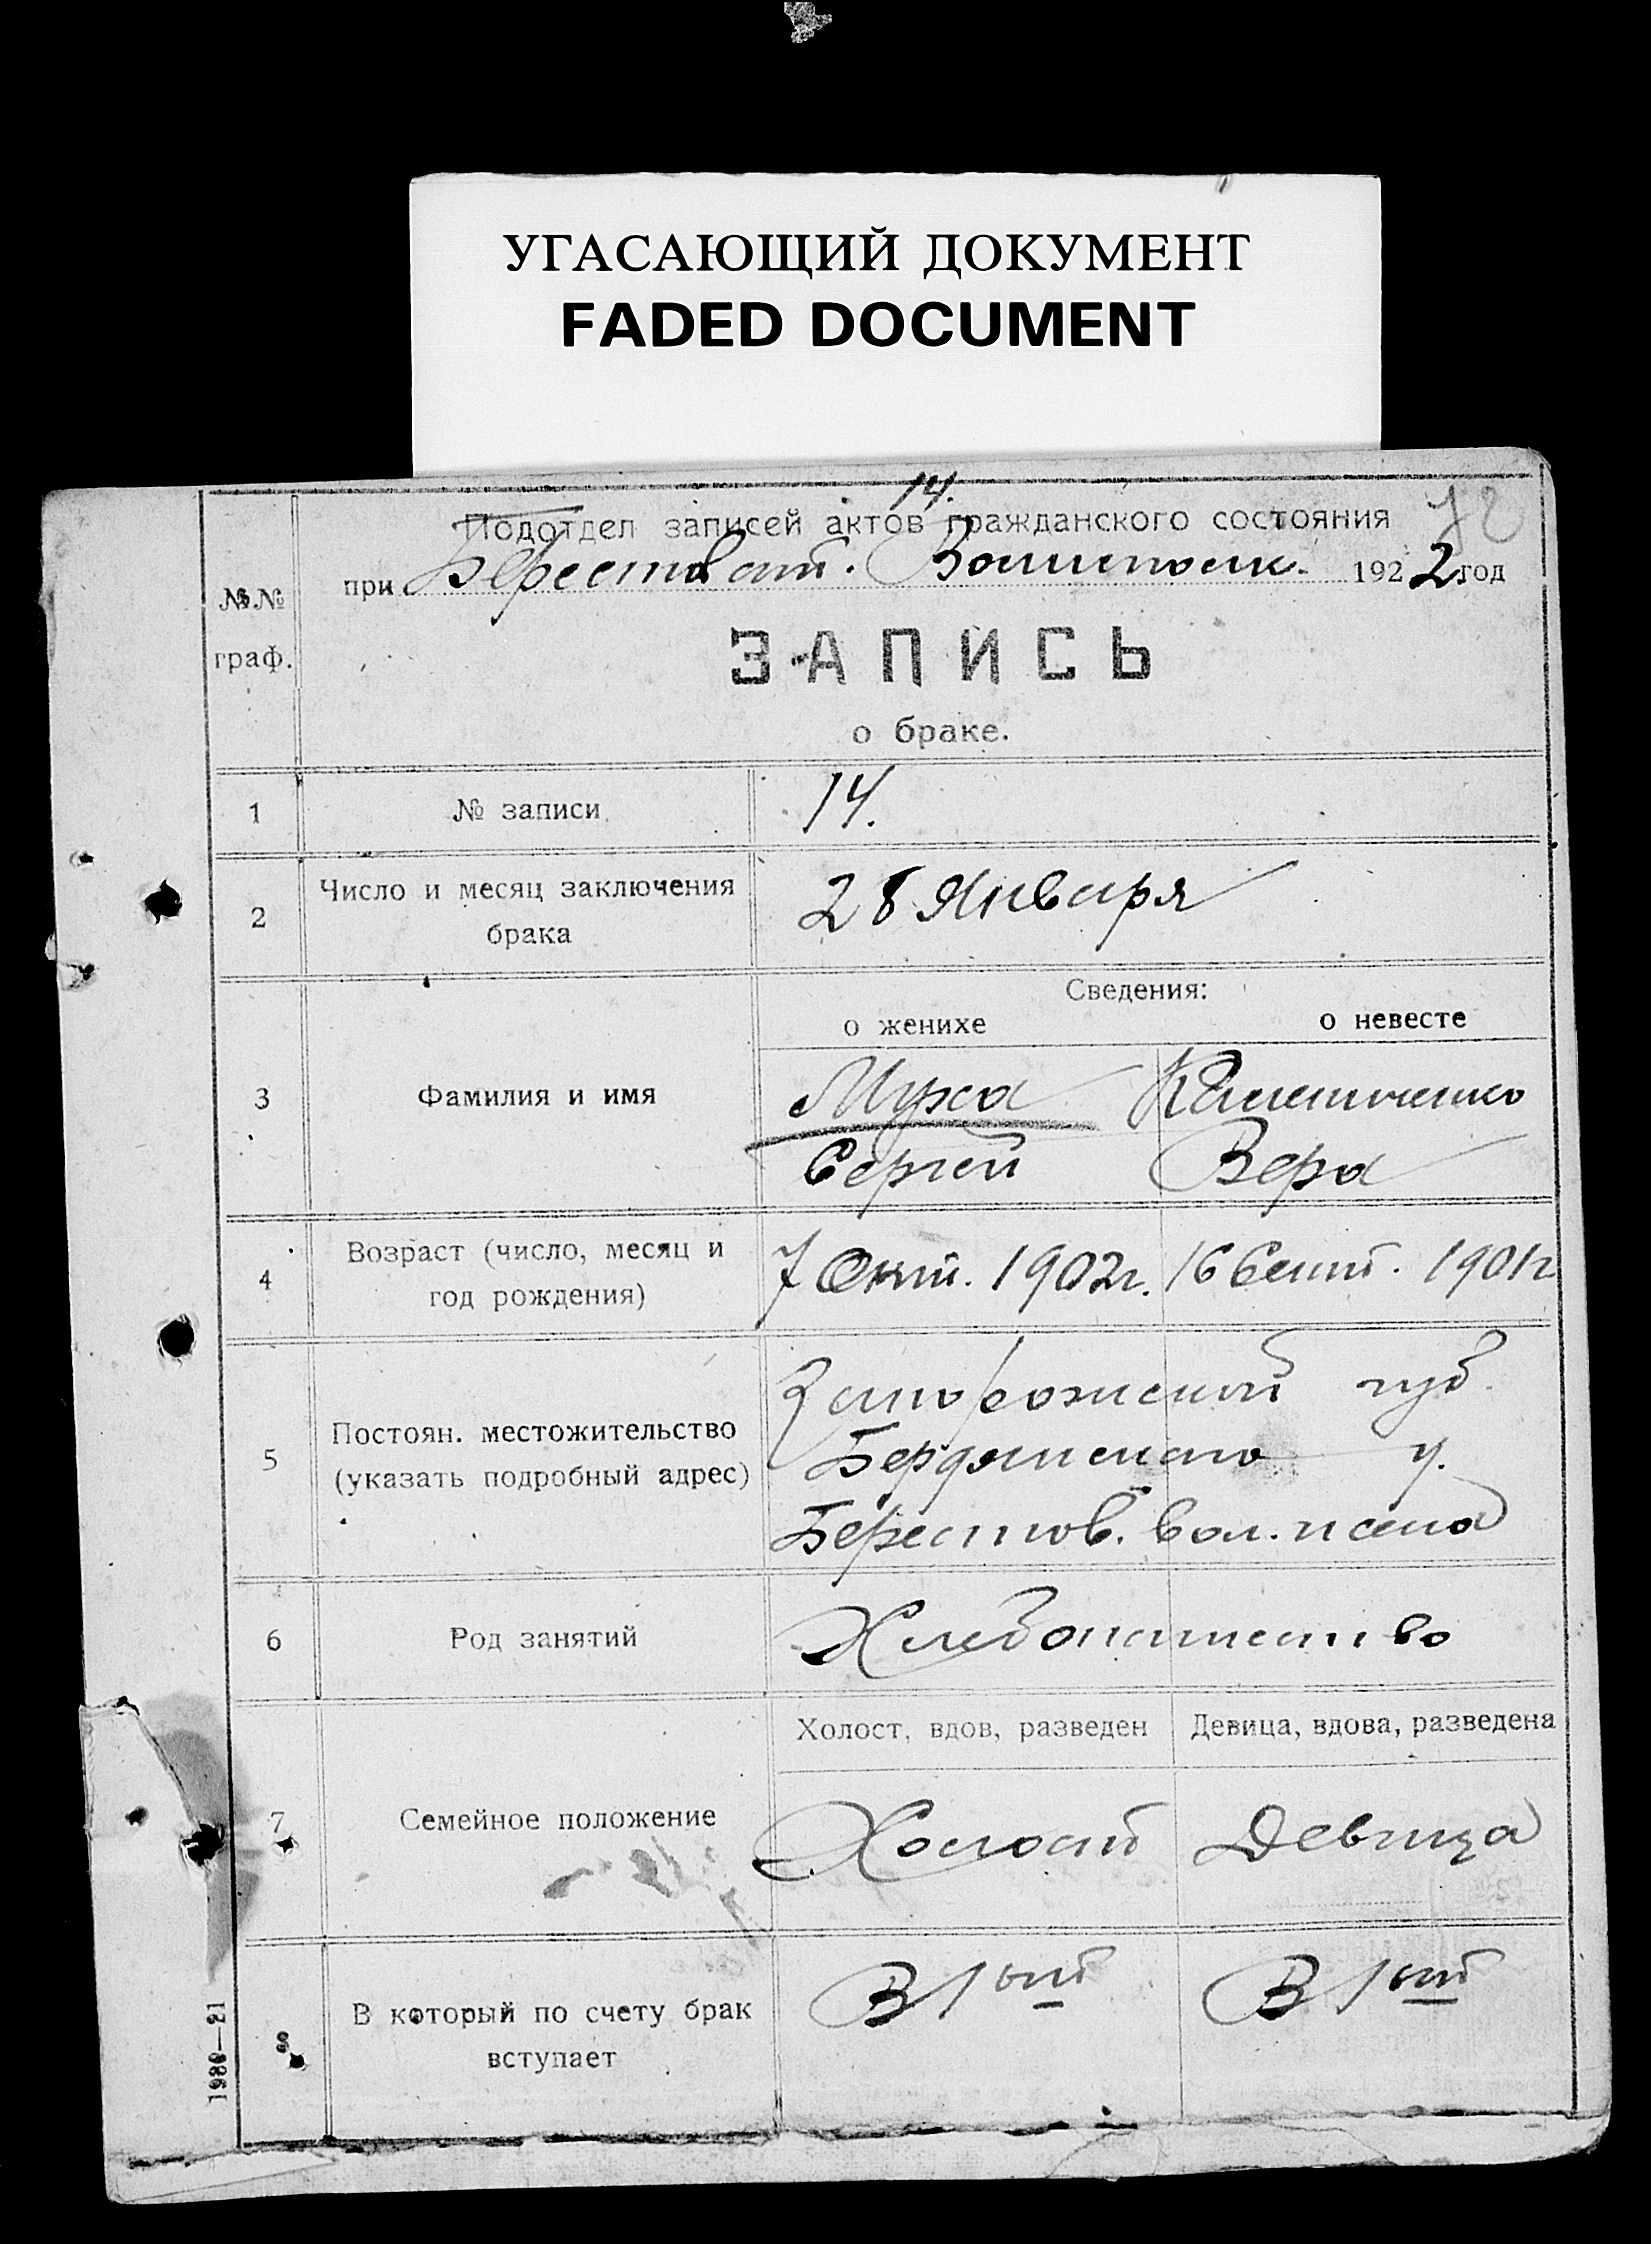 УГАСАЮЩИЙ ДОКУМЕНТ
FADED DOCUMENT
14.
72
Подотдел записей актов гражданского состояния
при Берестоват. Волисполк. 1922 год
№№
граф.
ЗАПИСЬ
о браке.
1 № записи 14.
2 Число и месяц заключения
брака
28 Января
Сведения:
о женихе о невесте
3 Фамилия и имя
Муха
Сергей Вера
4 Возраст (число, месяц и
год рождения)
7 Окт. 1902г. 16 Сент. 1901г
5 Постоян. местожительство
(указать подробный адрес)
Запорожской губ.
Бердянского у.
Берестов. вол. и села
6 Род занятий Хлебопашество
Холост, вдов, разведен Девица, вдова, разведена
7 Семейное положение Холост Девица
8 В который по счету брак
вступает
В 1ый В 1ый
1980—21